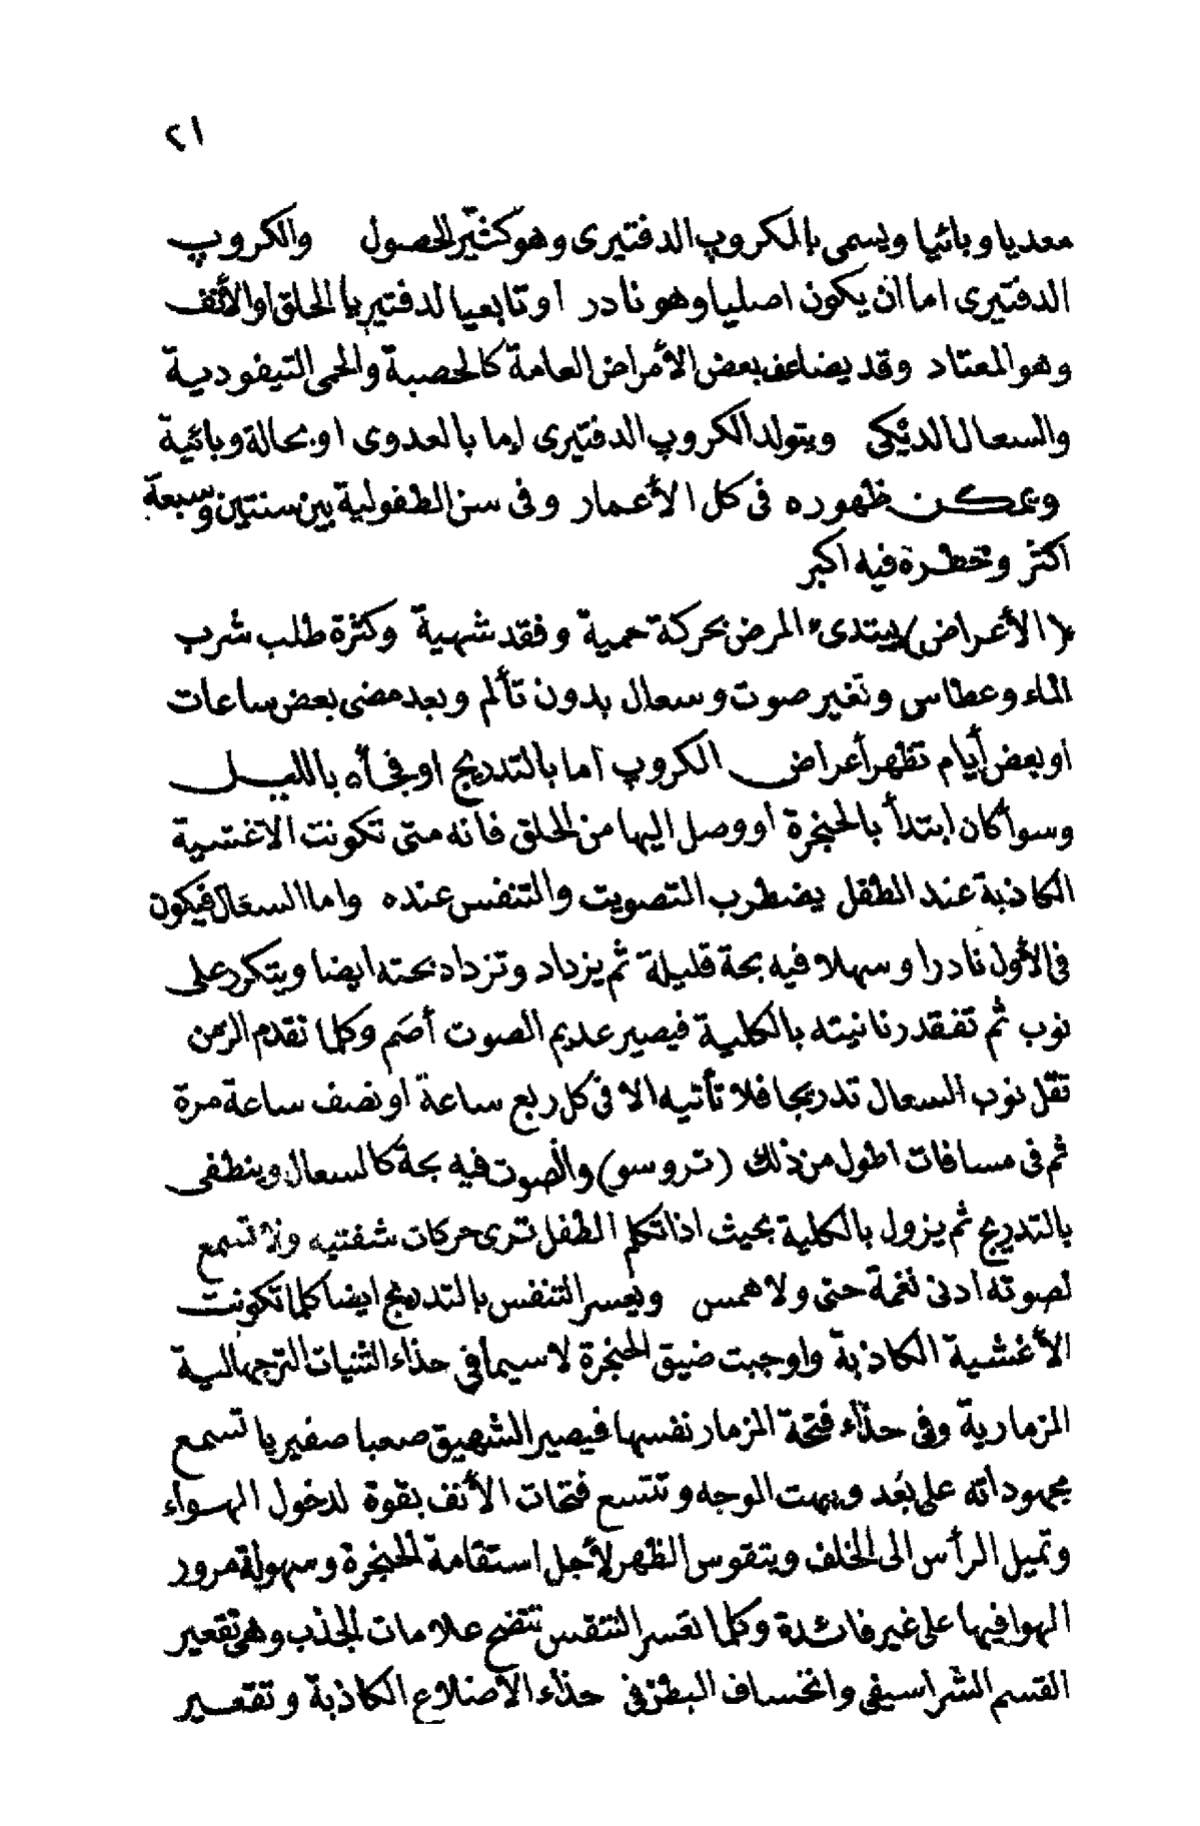 ٢١
معديا وبائيا ويسمى بالكروپ الدفتيرى وهو كثير الحصول والكروپ
الدفتيرى اما ان يكون اصليا وهو نادر او تابعيا لدفتيريا الحلق او الأنف
وهو المعتاد وقد يضاعف بعض الأمراض العامة كالحصبة والحمى التيفودية
والسعال الديكى ويتولد الكروپ الدفتيرى إما بالعدوى او بحالة وبائية
ويمكن ظهوره فى كل الأعمار وفى سن الطفولية بين سنتين وسبعة
اكثر وخطرة فيه اكبر
﴿الأعراض﴾ يبتدىء المرض بحركة حمية وفقد شهية وكثرة طلب شرب
الماء وعطاس وتغير صوت وسعال بدون تألم وبعد مضى بعض ساعات
او بعض أيام تظهر أعراض الكروپ اما بالتدريج او فجأه بالليل
وسوأ كان ابتدأ بالحنجرة او وصل اليها من الحلق فانه متى تكونت الاغشية
الكاذبة عند الطفل يضطرب التصويت والتنفس عنده واما السعال فيكون
فى الأول نادرا وسهلا فيه بحة قليلة ثم يزداد وتزداد بحته ايضا ويتكرر على
نوب ثم تفقد رنانيته بالكلية فيصير عديم الصوت أصم وكلما تقدم الزمن
تقل نوب السعال تدريجا فلا تأتيه الا فى كل ربع ساعة او نصف ساعة مرة
ثم فى مسافات اطول من ذلك (تروسو) والصوت فيه بحة كالسعال وينطفى
بالتدريج ثم يزول بالكلية بحيث اذا تكلم الطفل ترى حركات شفتيه ولا تسمع
لصوته أدنى نغمة حتى ولا همس ويعسر التنفس بالتدريج ايضا كلما تكونت
الأغشية الكاذبة واوجبت ضيق الحنجرة لا سيما فى حذاء الثنيات الترجهالية
المزمارية وفى حذاء فتحة المزمار نفسها فيصير الشهيق صعبا صفيريا تسمع
مجهوداته على بُعد ويبهت الوجه وتتسع فتحات الأنف بقوة لدخول الهواء
وتميل الرأس الى الخلف ويتقوس الظهر لأجل استقامة الحنجرة وسهولة مرور
الهوا فيها على غير فائدة وكلما تعسر التنفس تتضح علامات الجذب وهى تقعير
القسم الشراسيفى وانخساف البطن فى حذاء الاضلاع الكاذبة وتقعير